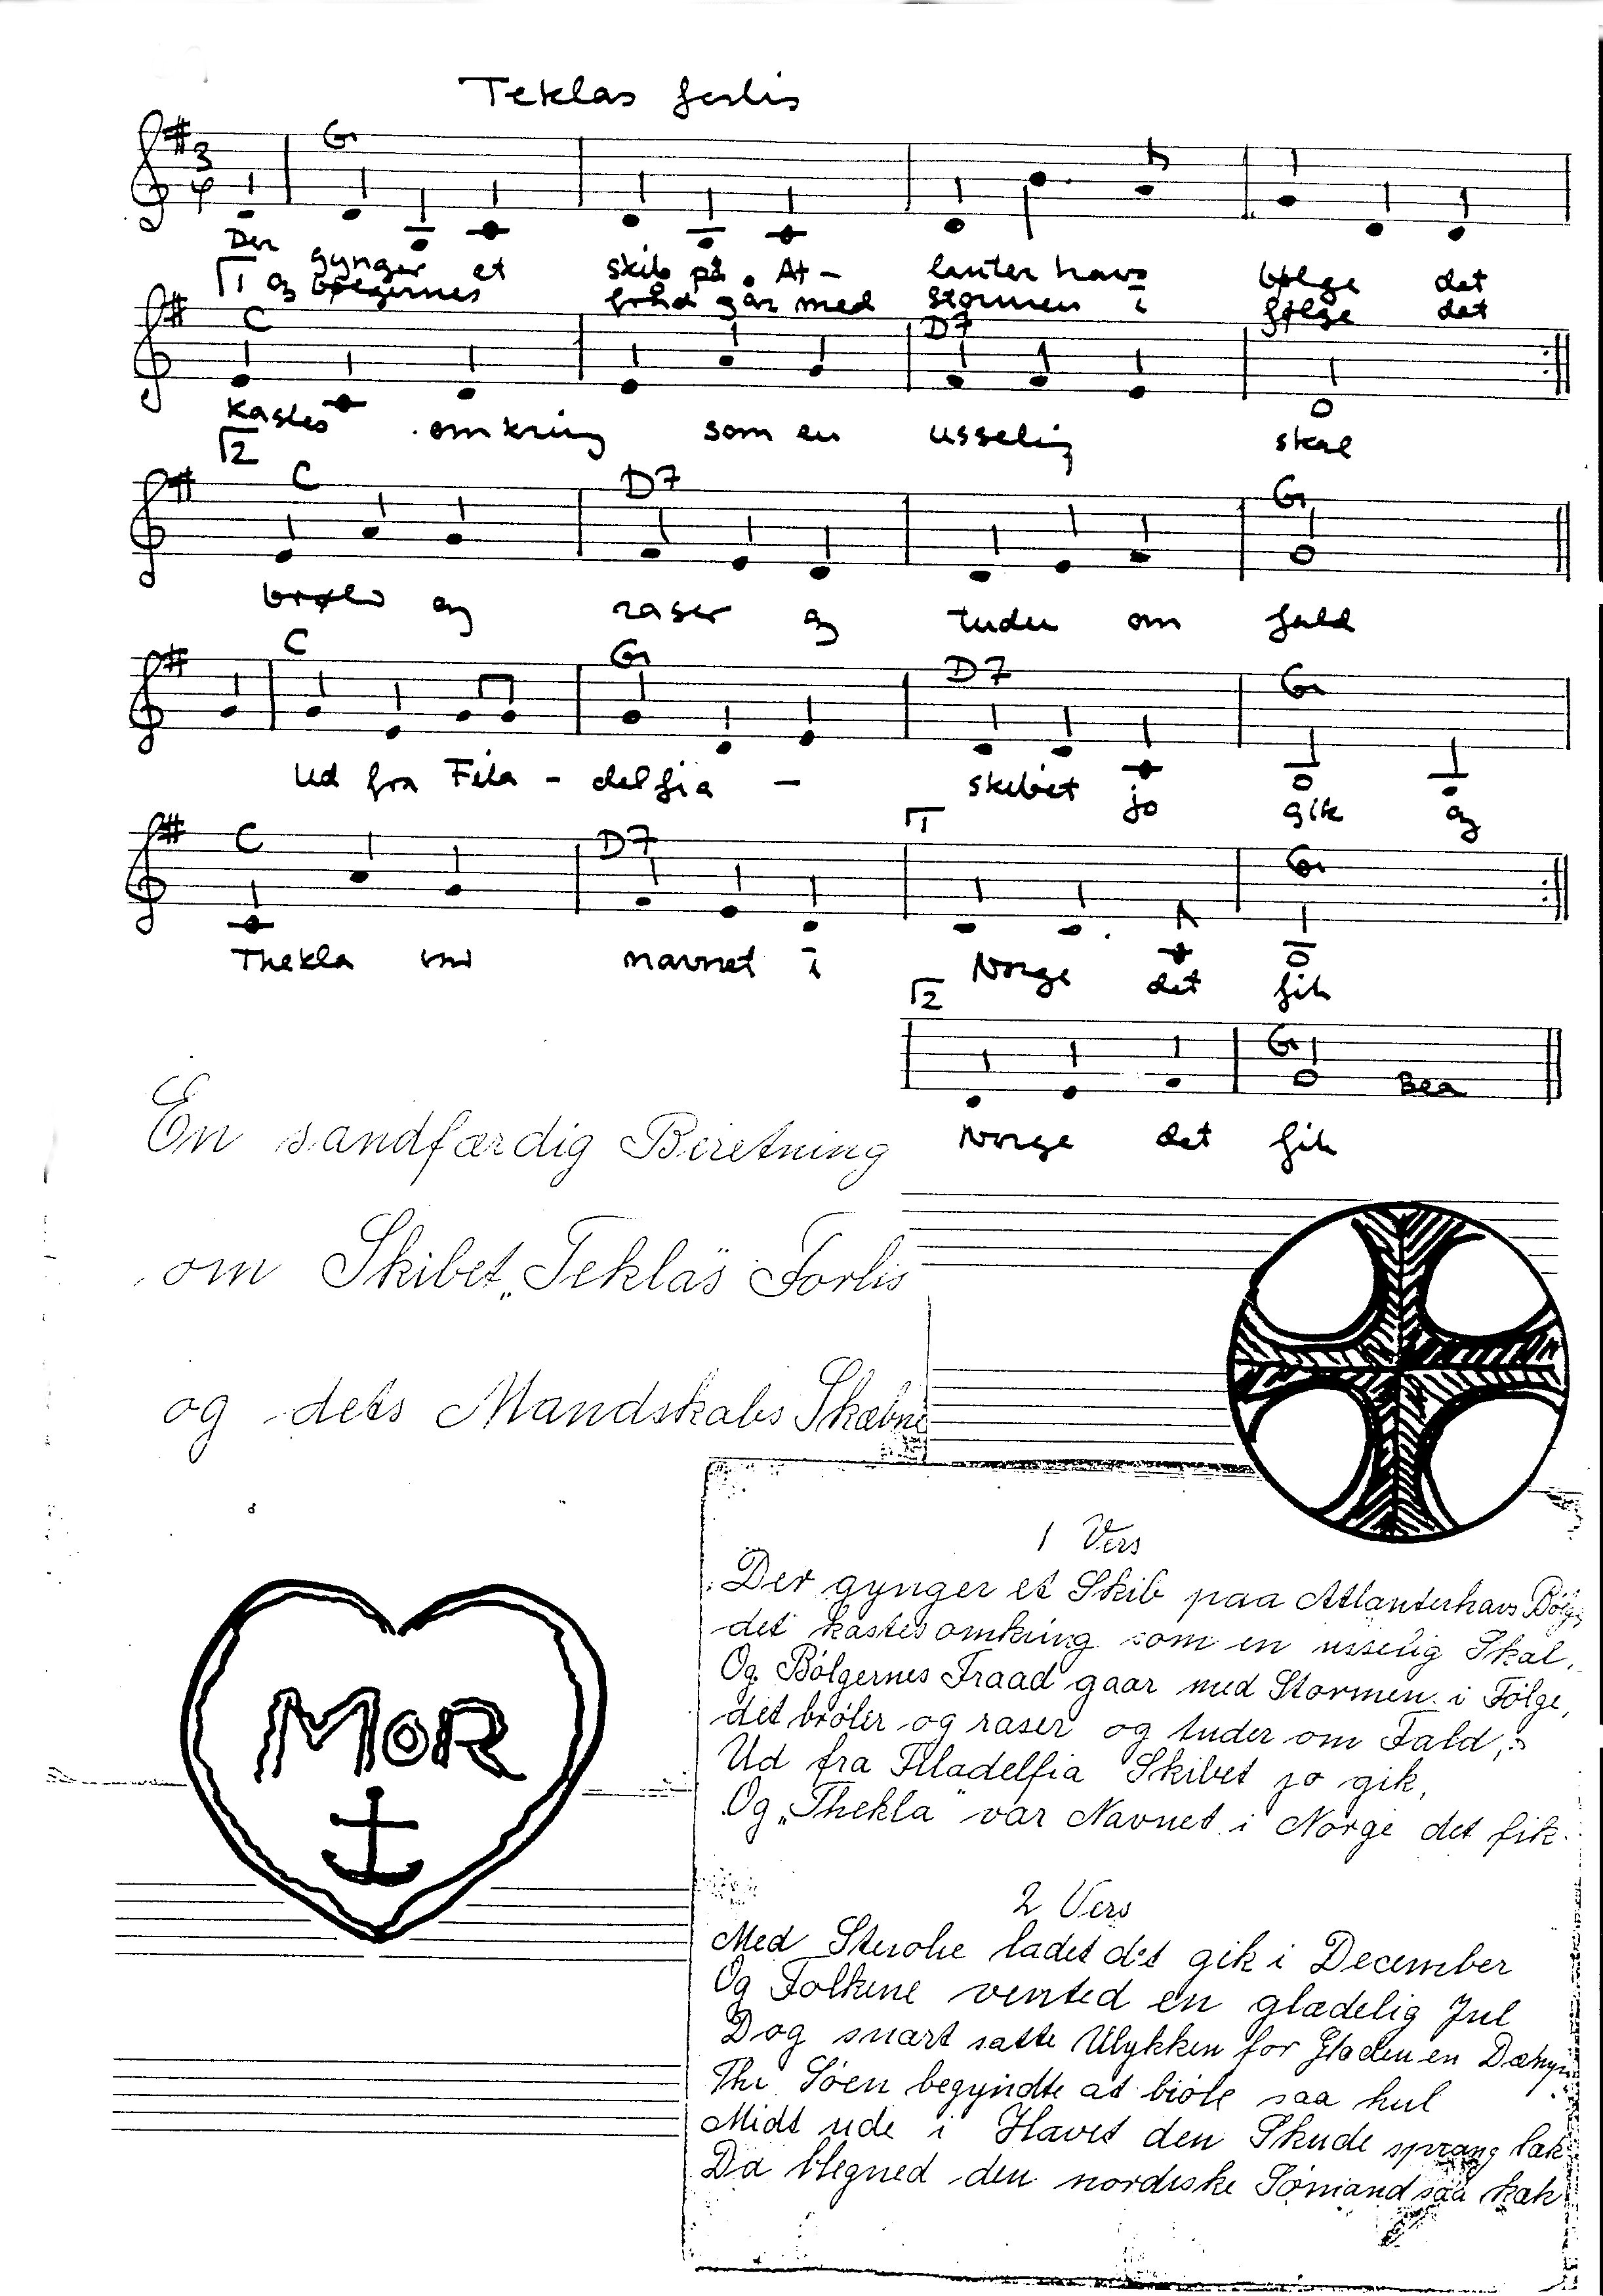 Teklas forlis
3
4
G
Der gynger et skib på At - lanter havs bølge det
1 og bølgernes fråd går med stormen i følge det
C D7
kastes omkring som en usselig skal
2
C D7 G
brøler og raser og tuder om fald
C G D7 G
Ud fra Fila - delfia - skibet jo gik og
C D7 1 G
Thekla var navnet i Norge det fik
2
G
Norge det fik
En sandfærdig Beretning
om Skibet „Teklas" Forlis
og dets Mandskabs Skæbne
1 Vers
Der gynger et Skib paa Atlanterhavs Bølge
det kastes omkring som en usselig Skal.
Og Bølgernes Fraad gaar med Stormen i Følge,
det brøler og raser og tuder om Fald,
Ud fra Filadelfia Skibet jo gik,
Og „Thekla" var Navnet i Norge det fik.
MOR
2 Vers
Med ladet det gik i December
Og Folkene vented en glædelig Jul
Dog snart satte Ulykken for Glæden en
Thi Søen begyndte at brøle saa hul
Midt ude i Havet den Skude sprang læk
Da blegned den nordiske Sømand saa kæk